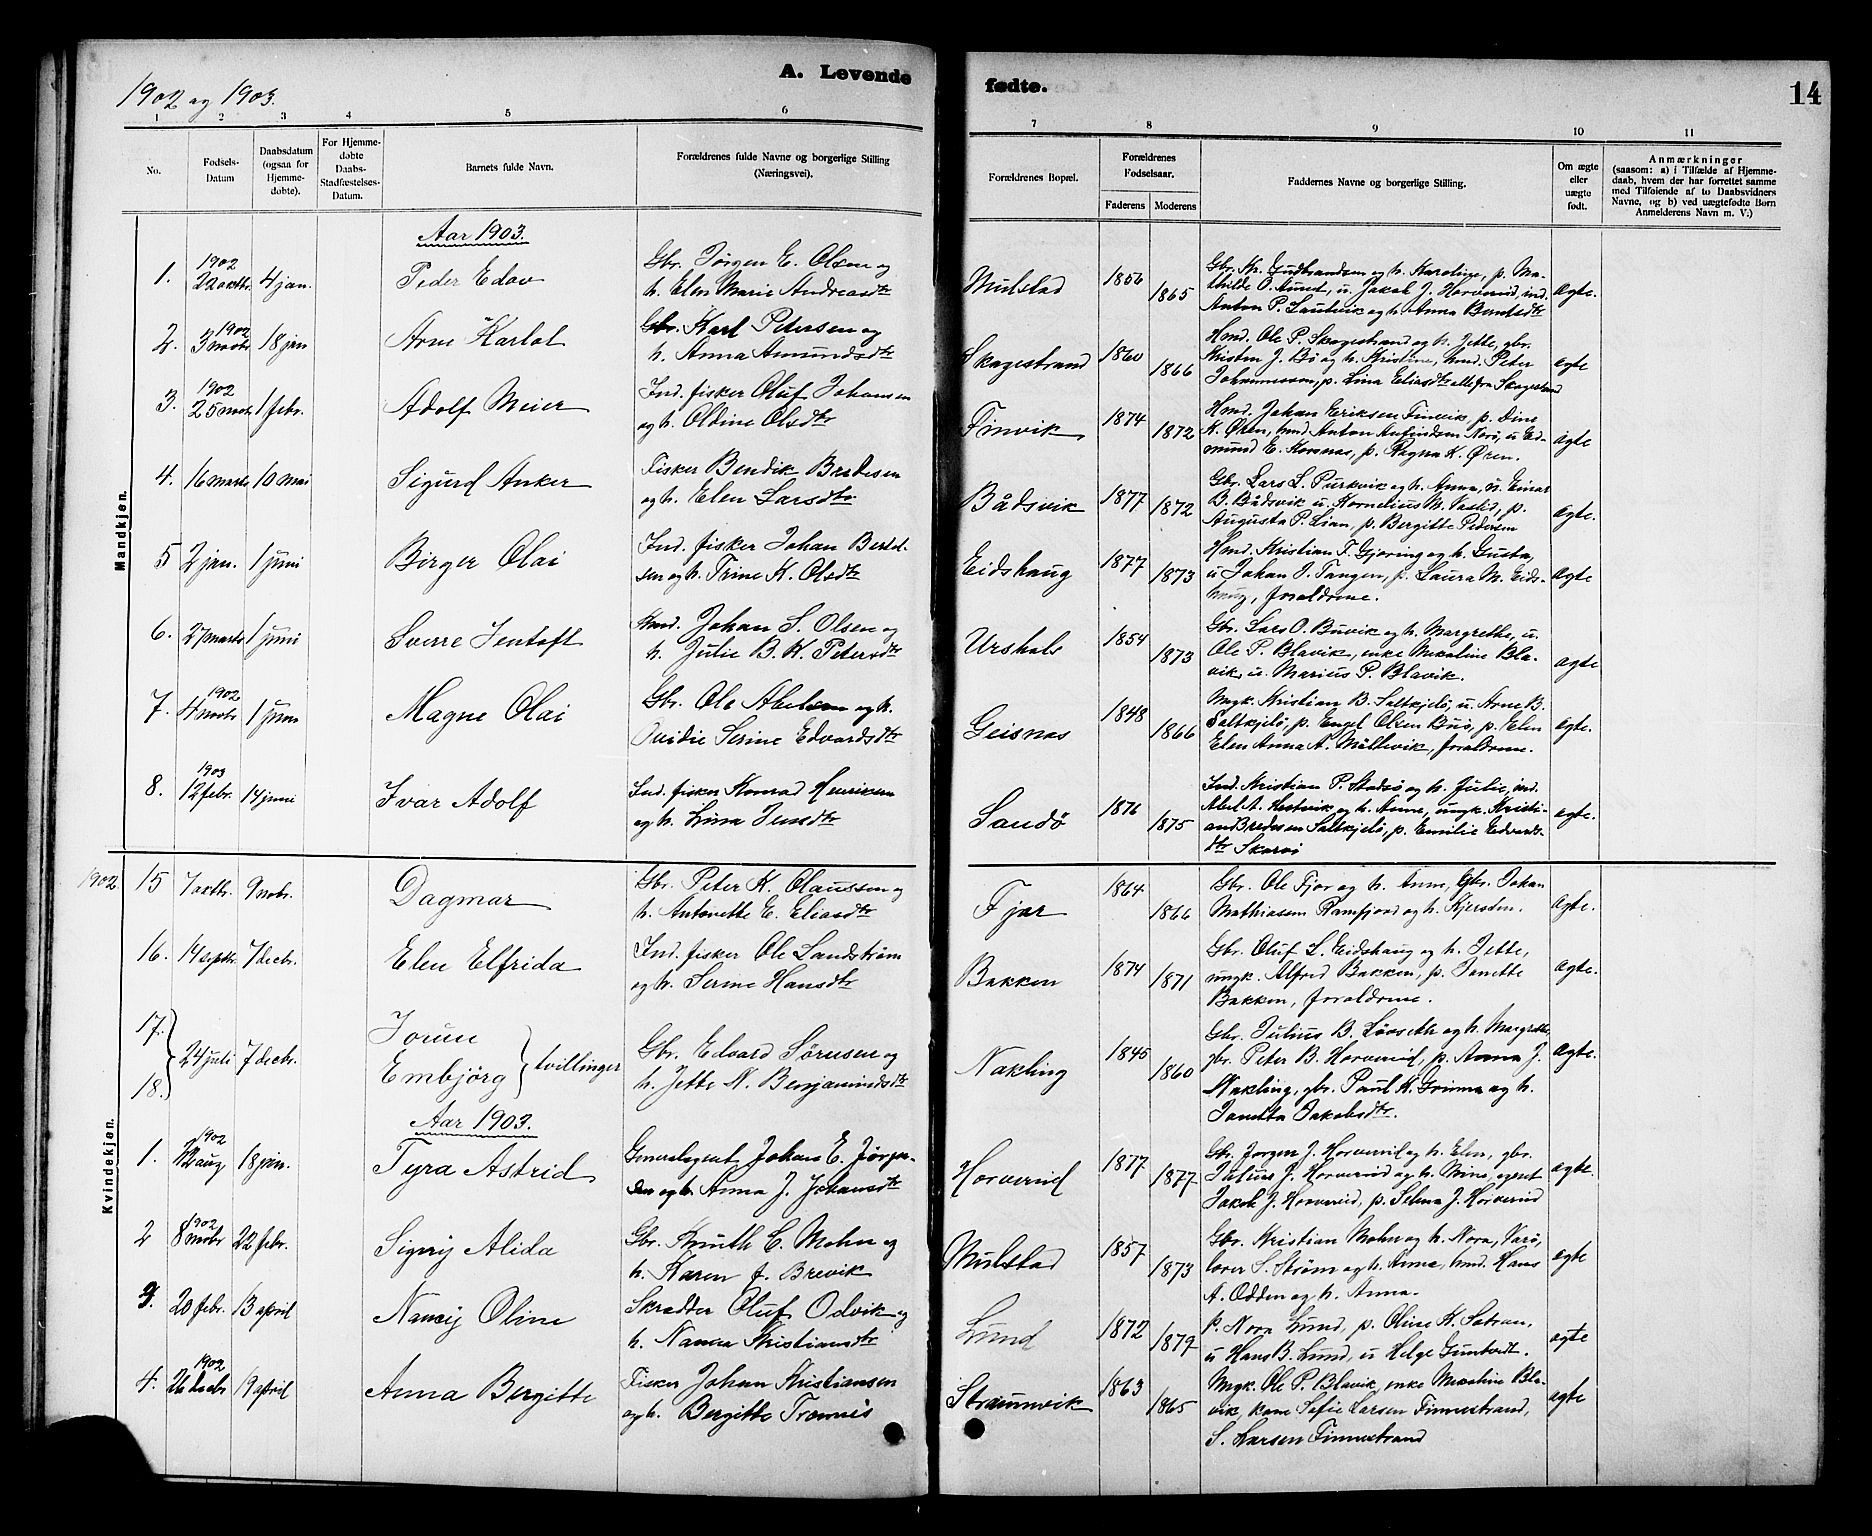 1902 og 1903.
A. Levende
fødte.
14
1 2 3 4 5 6 7 8 9 10 11
No.
Fodsels-
Datum
Daabsdatum
(ogsaa for
Hjemme-
døbte).
For Hjemme-
døbte
Daabs-
Stadfæstelses-
Datum.
Barnets fulde Navn.
Forældrenes fulde Navne og borgerlige Stilling
(Næringsvei).
Forældrenes Bopæl.
Forældrenes
Fodselsaar.
Faderens Moderens
Faddernes Navne og borgerlige Stilling.
Om ægte
eller
uægte
født.
Anmærkninger
(saasom: a) i Tilfælde af Hjemme-
daab, hvem der har forrettet samme
med Tilføiende af to Daabsvidners
Navne, og b) ved uægtefødte Børn
Anmelderens Navn m. V.)
Mandkjøn.
Aar 1903.
1. 1902 22 oktbr. 4 jan. Peder Edov
Gbr. Jørgen E. Olsen og
h. Elen Marie Andreasdtr
Mulstad 1856 1865
Gbr. Kr. Gudbrandsen og h. Karoline, p. Ma-
thilde O. Aunet, u. Jakob J. Horvereid, ind.
Anton P. Lautvik og h. Anna Berntsdtr
ægte.
2. 1902 3 novbr 18 jan Arne Karlot
Gbr. Karl Petersen og
h. Anna Amundsdtr
Skagestrand 1860 1866
Hmd. Ole P. Skagestrand og h. Jette, gbr.
Kristen J. Bø og h. Kristine, hmd. Peter
Johannessen, p. Lina Eliasdtr alle fra Skagestrand
ægte
3. 1902 25 novbr 1 febr. Adolf Meier
Ind. fisker Oluf Johansen
og h. Oldine Olsdtr
Finvik 1874 1872
Hmd. Johan Eriksen Finvik, p. Dine
K. Øren, hmd Anton Anfindsen Norø, u. Ed-
mund E. Hornnæs, p. Ragna K. Øren.
ægte
4. 16 marts 10 mai Sigurd Anker
Fisker Bendik Bredesen
og h. Elen Larsdtr
Bådsvik 1877 1872
Gbr. Lars L. Purkvik og h. Anna, u. Einar
B. Bådsvik u. Kornelius M. Vaslid, p.
Augusta P. Lian, p. Bergitte Pedersen
ægte.
5 2 jan. 1 juni Birger Olai
Ind. fisker Johan Bertel-
sen og h. Trine K. Olsdtr
Eidshaug 1877 1873
Hmd. Kristian F. Gjøring og h. Gusta,
u Johan J. Tangen, p. Laura M. Eids-
haug, forældrene.
ægte
6. 27 marts 1 juni Sverre Jentoft
Hmd. Johan S. Olsen og
h. Julie B. K. Petersdtr
Urshals 1854 1873
Gbr. Lars O. Buvik og h. Margrethe, u.
Ole P. Blavik, enke Mekaline Bla-
vik, u. Marius P. Blavik.
ægte
7. 1902 4 novbr 1 juni Magne Olai
Gbr. Ole Abelsen og h.
Ovidie Serine Edvardsdtr
Geisnæs 1848 1866
Ungk. Kristian B. Saltkjelø, u. Arne B.
Saltkjelø, p. Engel Olsen Buø, p. Elen
Elen Anna A. Møllevik, forældrene.
ægte.
8. 1903 12 febr. 14 juni Ivar Adolf
Ind. fisker Konrad Henriksen
og h. Lina Jensdtr
Sandø 1876 1875
Ind. Kristian P. Stadsø og h. Julie, ind.
Abel A. Hestvik og h. Anne, ungk. Kristi-
an Bredesen Saltkjelø, p. Emilie Edvards-
dtr Skarøi
ægte.
Kvindekjøn.
1902. 15 7 oktbr. 9 nobr. Dagmar
Gbr. Peter K. Olaussen og
h. Antonette E. Eliasdtr
Fjær 1864 1866
Gbr. Ole Fjær og h. Anne, Gbr. Johan
Mathiasen Ramfjord og h. Kjersten.
ægte.
16. 14 septbr. 7 decbr. Elen Elfrida
Ind. fisker Ole Landstrøm
og h. Serine Hansdtr
Bakken 1874 1871
Gbr. Oluf L. Eidshaug og h. Jette,
ungk. Alfred Bakken, p. Janette
Bakken, forældrene.
ægte.
17. 18. 24 juli 7 decbr. Jorun
Embjörg tvillinger
Gbr. Edvard Sørensen og
h. Jette N. Benjaminsdtr
Nakling 1845 1860
Gbr. Julius B. Løvseth og h. Margrethe,
gbr. Peter B. Horvereid, p. Anna J.
Nakling, gbr. Paul K. Grinna og h.
Janetta Jakobsdtr.
ægte.
Aar 1903.
1. 1902 22 aug. 18 jan. Tyra Astrid
Generalagent Johan E. Jørgen-
sen og h. Anna J. Johansdtr
Horvereid 1877 1877
Gbr. Jørgen J. Horvereid og h. Elen, gbr.
Julius J. Horvereid og h. Mine, agent
Jakob J. Horvereid, p. Selma J. Horvereid
ægte.
2 1902 8 novbr 22 febr. Signy Alida
Gbr. Knuth C. Mohn og
h. Karen f. Brevik
Mulstad 1857 1873
Gbr. Kristian Mohn og h. Nora, Værø,
lærer S. Strøm og h. Anna, hmd. Hans
A. Odden og h. Anna.
ægte
3. 20 febr. 13 april Nancy Oline
Skrædder Oluf Odvik og
h. Nanna Kristiansdtr
Lund 1872 1879
p. Nora Lund, p. Oline K. Sætran,
u Hans B. Lund, u Helge Gunbodt.
ægte
4. 1902 26 decbr 19 april Anna Bergitte
Fisker Johan Kristiansen
og h. Bergitte Tromnes
Straumvik 1863 1865
Ungk. Ole P. Blavik, enke Mekaline Bla-
vik, kone Sofie Larsen Finnestrand,
S. Larsen Finnestrand
ægte